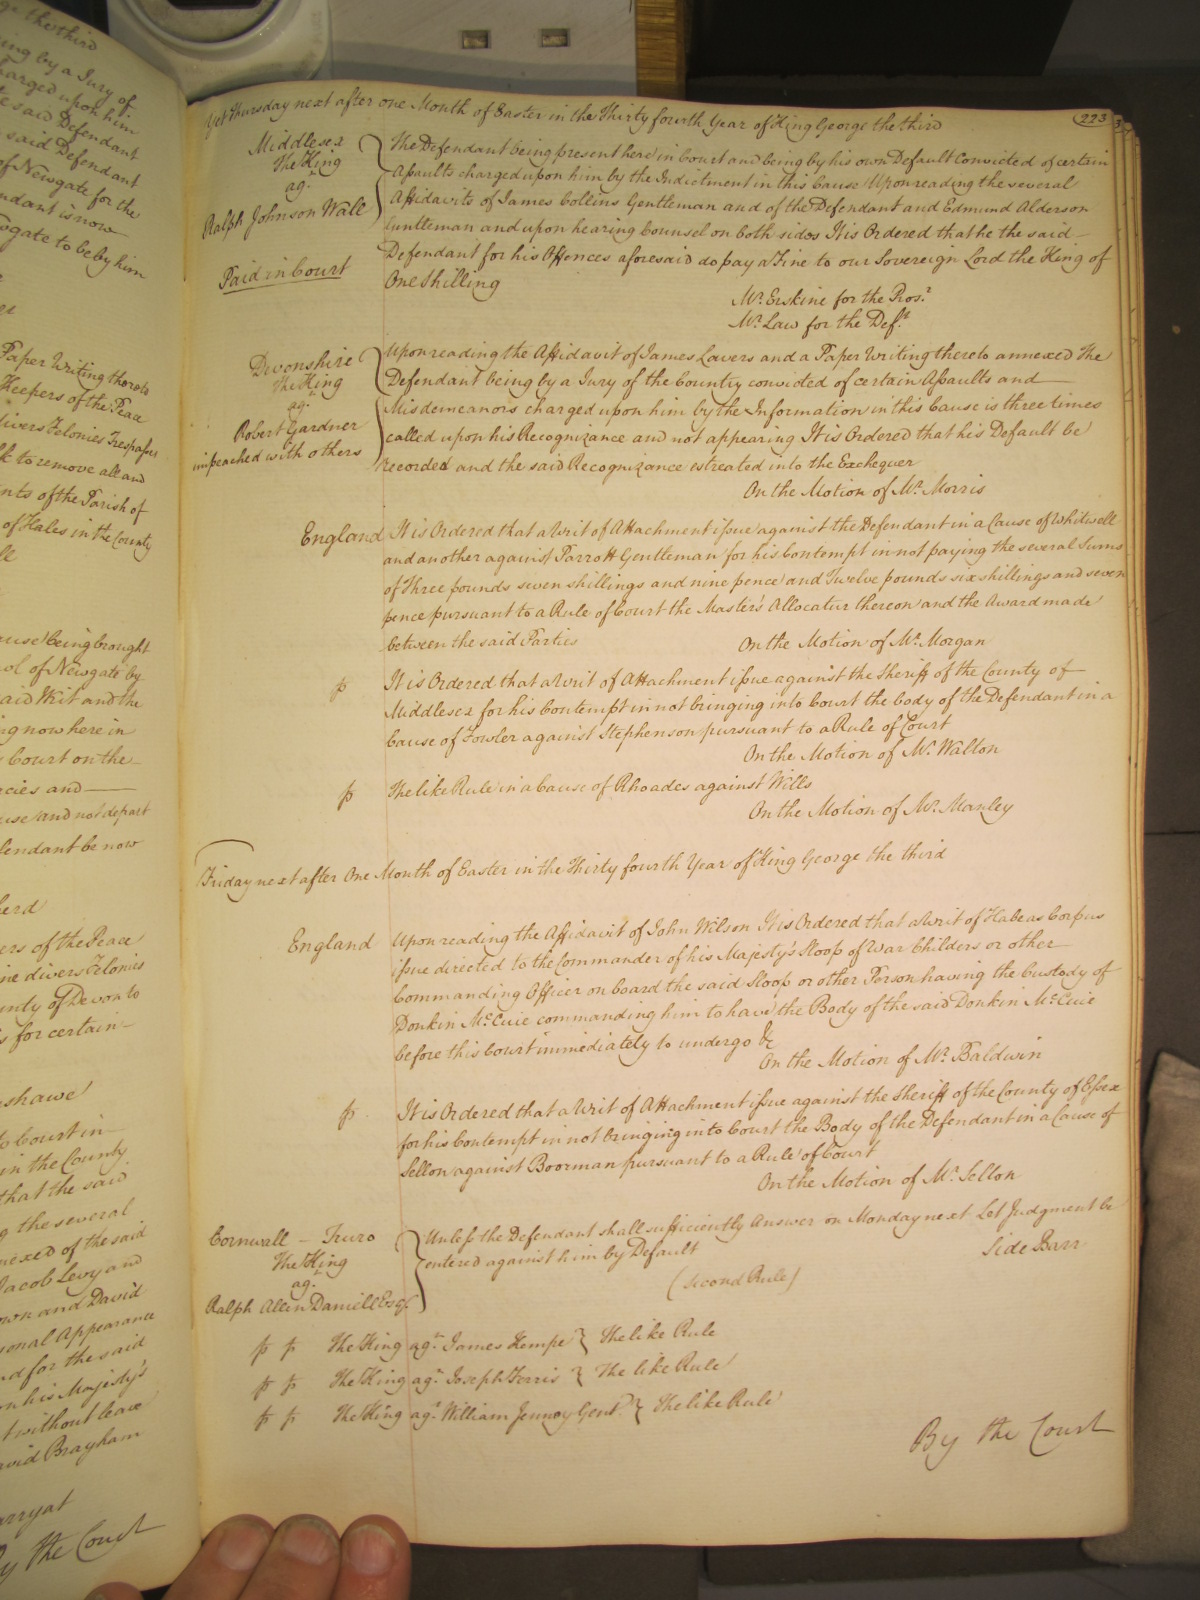 ge the third
ing by a Jury of
harged upon him
e said Defendant
said Defendant
of Newgate for the
ndant is now
ogate to be by him
Paper Writing thereto
Keepers of the Peace
divers Felonies Trespasses
k to remove all and
nts of the Parish of
of Hales in the County
ause being brought
ol of Newgate by
said Writ and the
ng now here in
Court on the
acies and
use and not depart
fendant be now
herd
ers of the Peace
ine divers Felonies
unty of Devon to
s for certain
shawe
to Court in
in the County
that the said
g the several
nexed of the said
Jacob Levy and
own and David
sonal Appearance
nd for the said
on his Majesty's
t without leave
avid Brayham
arryat
By the Court
223
Yet Thursday next after one Month of Easter in the Thirty fourth Year of King George the third
Middlesex
The King
agt
Ralph Johnson Wall
Paid in Court
The Defendant being present here in Court and being by his own Default Convicted of certain
Assaults charged upon him by the Indictment in this Cause Upon reading the several
Affidavits of James Collins Gentleman and of the Defendant and Edmund Alderson
Gentleman and upon hearing Counsel on both sides It is Ordered that he the said
Defendant for his Offences aforesaid do pay a Fine to our Sovereign Lord the King of
One Shilling
Mr. Erskine for the Prosr.
Mr. Law for the Deft.
Devonshire
The King
agt
Robert Gardner
impeached with others
Upon reading the Affidavit of James Lavers and a Paper Writing thereto annexed The
Defendant being by a Jury of the Country convicted of certain Assaults and
Misdemeanors charged upon him by the Information in this Cause is three times
called upon his Recognizance and not appearing It is Ordered that his Default be
recorded and the said Recognizance estreated into the Exchequer
On the Motion of Mr. Morris
England
It is Ordered that a Writ of Attachment issue against the Defendant in a Cause of Whitwell
and another against Parrott Gentleman for his Contempt in not paying the several Sums
of Three pounds seven shillings and nine pence and Twelve pounds six shillings and seven
pence pursuant to a Rule of Court the Master's Allocatur thereon and the Award made
between the said Parties
On the Motion of Mr. Morgan
p
It is Ordered that a Writ of Attachment issue against the Sheriff of the County of
Middlesex for his Contempt in not bringing into Court the body of the Defendant in a
Cause of Fowler against Stephenson pursuant to a Rule of Court
On the Motion of Mr. Walton
p
The like Rule in a Cause of Rhoades against Wills
On the Motion of Mr. Manley
Friday next after One Month of Easter in the Thirty fourth Year of King George the third
England
Upon reading the Affidavit of John Wilson It is Ordered that a Writ of Habeas Corpus
issue directed to the Commander of his Majesty's Sloop of War Childers or other
Commanding Officer on board the said Sloop or other Person having the Custody of
Donkin McCuie commanding him to have the Body of the said Donkin McCuie
before this Court immediately to undergo &c
On the Motion of Mr. Baldwin
p
It is Ordered that a Writ of Attachment issue against the Sheriff of the County of Essex
for his Contempt in not bringing into Court the Body of the Defendant in a Cause of
Sellon against Boorman pursuant to a Rule of Court
On the Motion of Mr. Sellon
Cornwall - Truro
The King
agt
Ralph Allen Daniell Esqr.
Unless the Defendant shall sufficiently Answer on Monday next Let Judgment be
entered against him by Default
Side Barr
(Second Rule)
p p The King agt. James Kempe } The like Rule
p p The King agt. Joseph Ferris } The like Rule
p p The King agt. William Jenney Gent. } The like Rule
By the Court